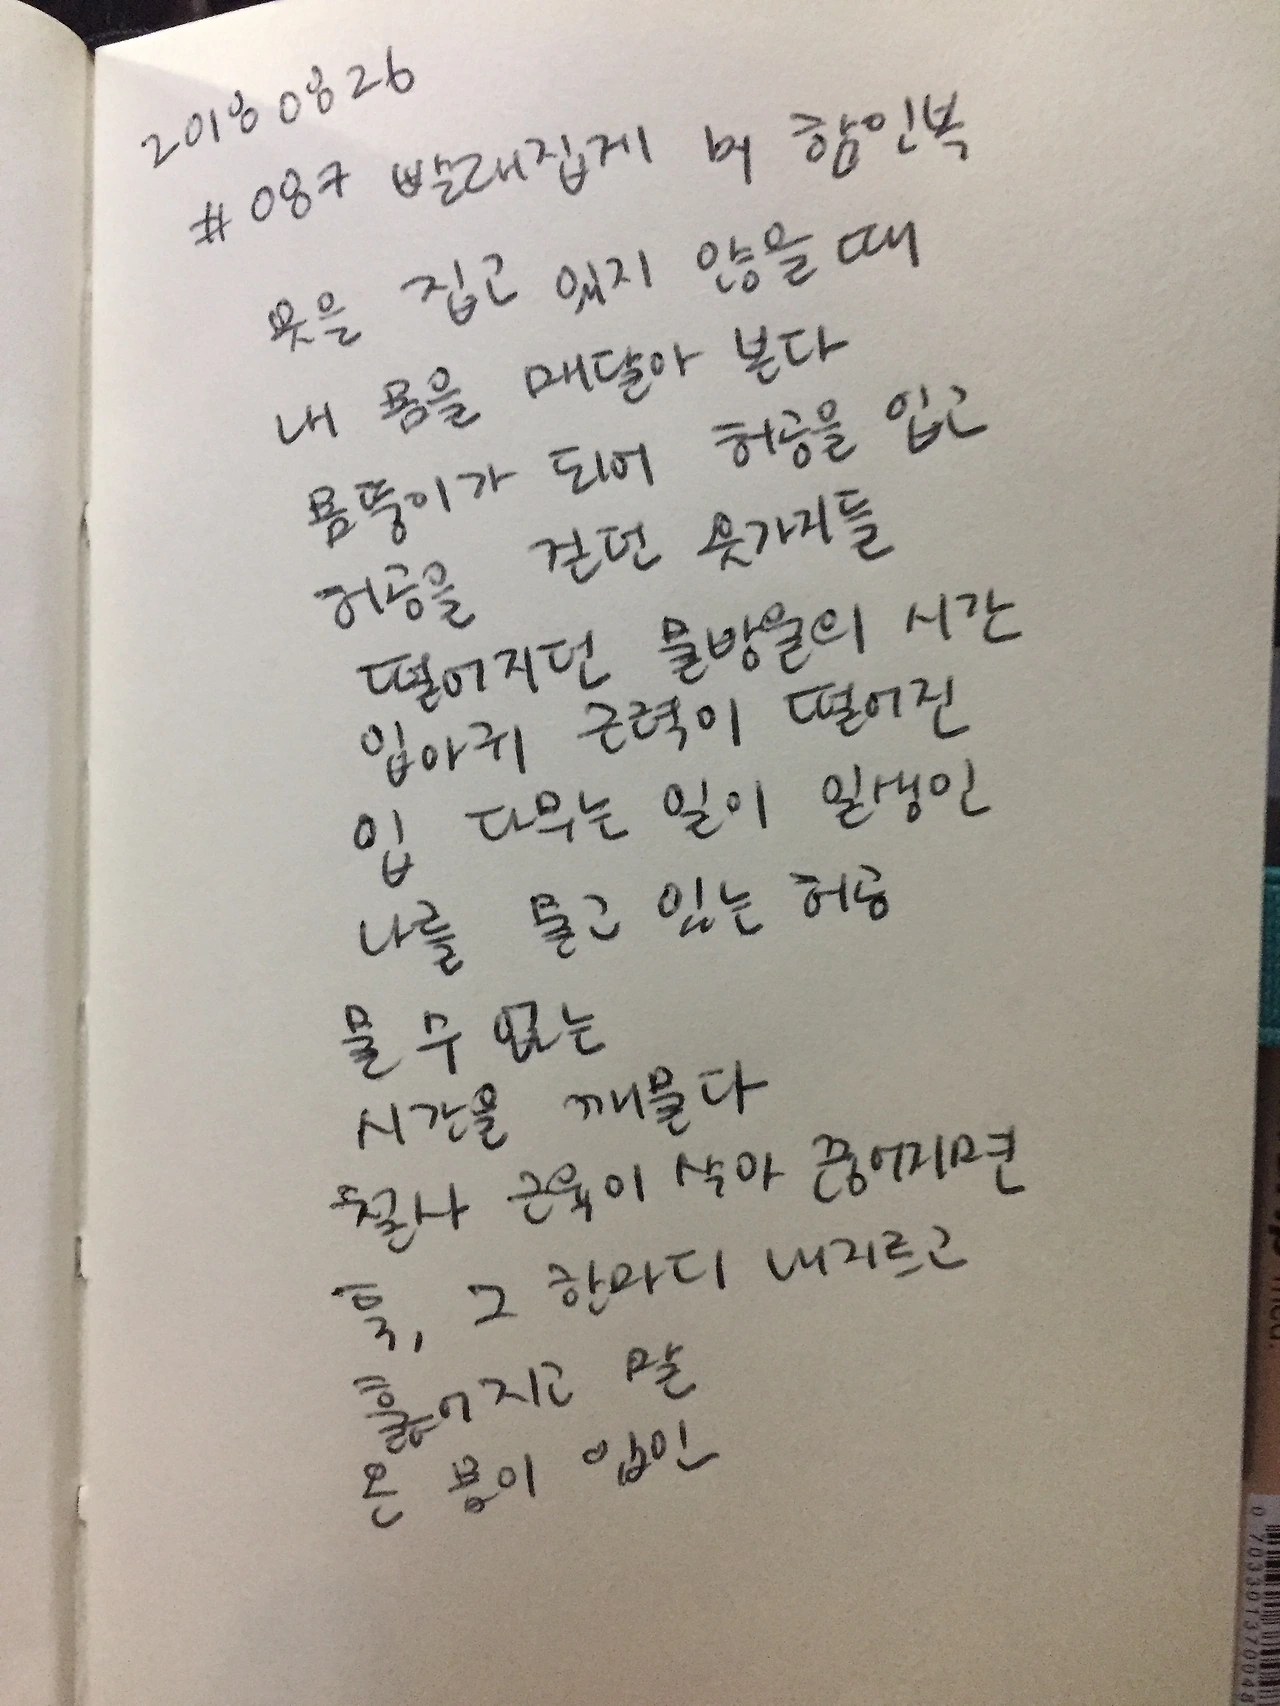 20180826
#087 빨래집게 by 함민복
옷을 집고 있지 않을 때
내 몸을 매달아 본다
몸뚱이가 되어 허공을 입고
허공을 걷던 옷가지들
떨어지던 물방울의 시간
입아귀 근력이 떨어진
입 다무는 일이 일생인
나를 물고 있는 허공
물 수 없는
시간을 깨물다
철사 근육이 삭아 끊어지면
툭, 그 한마디 내지르고
흩어지고 말
온 몸이 입인
0 70330137004